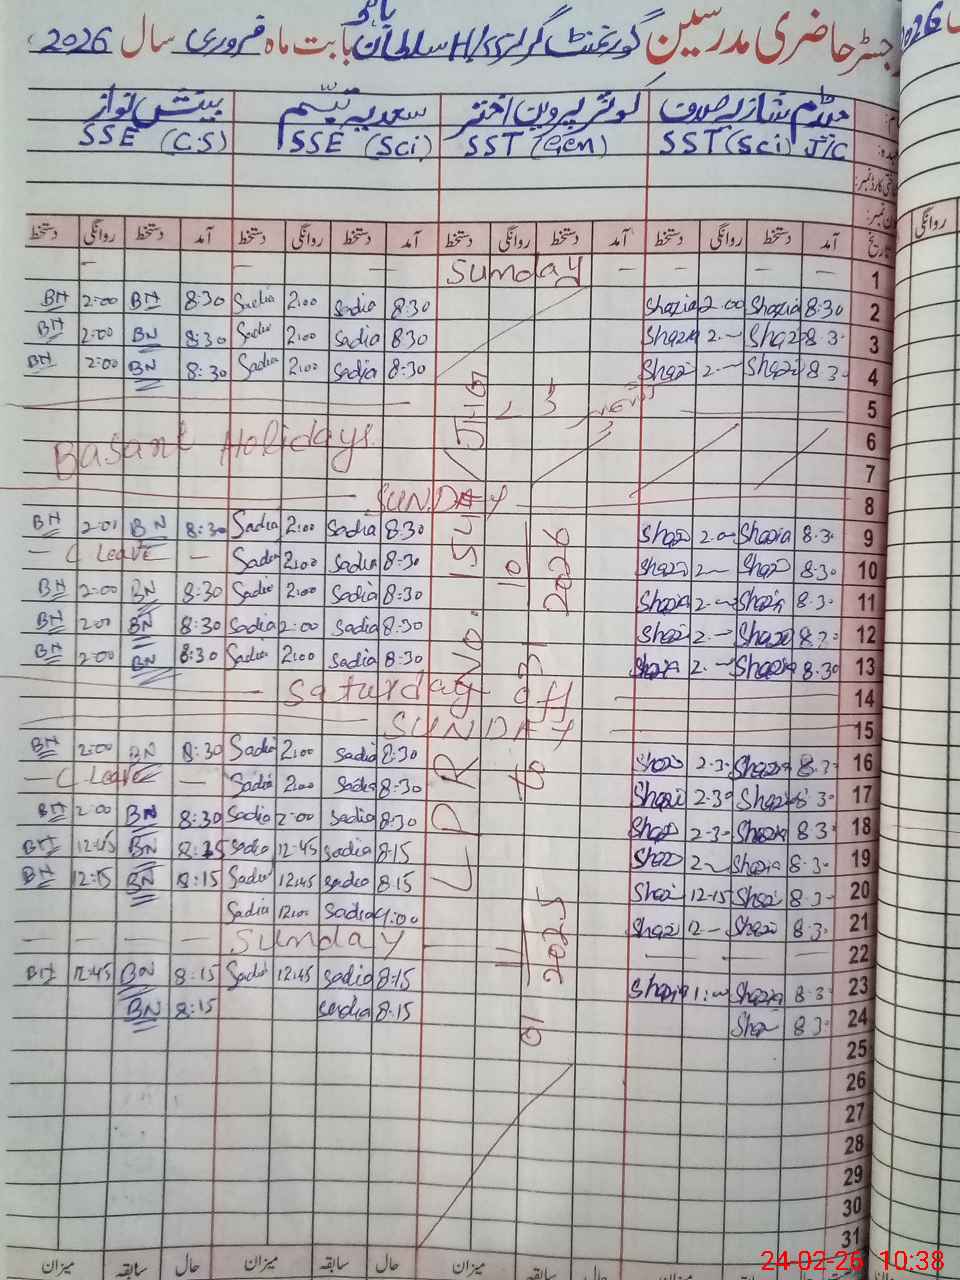 رجسٹر حاضری مدرسین گورنمنٹ گرلز H/SS سلطان باہو بابت ماہ فروری سال 2026
میڈم شازیہ صادق کوثر پروین اختر سعدیہ تبسم بینش نواز
SST (Sci) I/C SST (Gen) SSE (Sci) SSE (C.S)
تاریخ آمد دستخط روانگی دستخط آمد دستخط روانگی دستخط آمد دستخط روانگی دستخط آمد دستخط روانگی دستخط
Sunday 1
BN 2:00 BN 8:30 Sadia 2:00 Sadia 8:30 Shazia 2:00 Shazia 8:30 2
BN 2:00 BN 8:30 Sadia 2:00 Sadia 8:30 Shazia 2:- Shazi 8:30 3
BN 2:00 BN 8:30 Sadia 2:00 Sadia 8:30 Shazi 2:- Shazi 8:30 4
5
Basant Holidays 6
7
SUNDAY 8
BN 2:01 BN 8:30 Sadia 2:00 Sadia 8:30 Shazi 2:00 Shazia 8:30 9
C Leave Sadia 2:00 Sadia 8:30 Shazi 2:- Shazi 8:30 10
BN 2:00 BN 8:30 Sadia 2:00 Sadia 8:30 Shazia 2:- Shazia 8:30 11
BN 2:01 BN 8:30 Sadia 2:00 Sadia 8:30 Shazi 2:- Shazi 8:30 12
BN 2:00 BN 8:30 Sadia 2:00 Sadia 8:30 Shazia 2:- Shazia 8:30 13
Saturday off 14
SUNDAY 15
BN 2:00 BN 8:30 Sadia 2:00 Sadia 8:30 Shazi 2:30 Shazia 8:30 16
C Leave Sadia 2:00 Sadia 8:30 Shazi 2:30 Shazia 8:30 17
BN 2:00 BN 8:30 Sadia 2:00 Sadia 8:30 Shazi 2:30 Shazia 8:30 18
BN 12:45 BN 8:15 Sadia 12:45 Sadia 8:15 Shazi 2:- Shazia 8:30 19
BN 12:15 BN 8:15 Sadia 12:45 Sadia 8:15 Shazi 12:15 Shazi 8:30 20
Sadia 12:00 Sadia 9:00 Shazi 12:- Shazi 8:30 21
Sunday 22
BN 12:45 BN 8:15 Sadia 12:45 Sadia 8:15 Shazia 1:00 Shazia 8:30 23
BN 8:15 Sadia 8:15 Shaz 8:30 24
25
26
27
28
29
30
31
LPR No. 1544
01 11 2025 to 31 10 2026
میزان سابقہ حال میزان سابقہ حال میزان سابقہ حال میزان
24-02-26 10:38
2026
روانگی